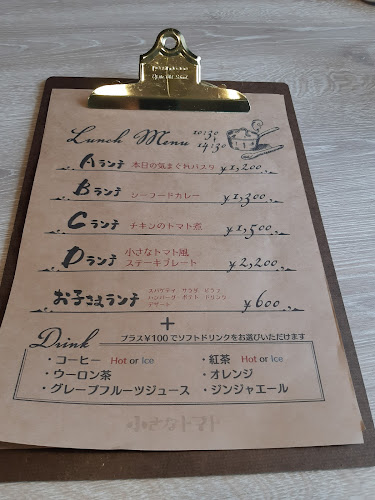 Lunch Menu 10:30
14:30
Aランチ 本日の気まぐれパスタ ¥1,200
Bランチ シーフードカレー ¥1,300
Cランチ チキンのトマト煮 ¥1,500
Dランチ 小さなトマト風
ステーキプレート ¥2,200
お子さまランチ スパゲティ サラダ ピラフ
ハンバーグ ポテト ドリンク
デザート ¥600
+
Drink プラス¥100でソフトドリンクをお選びいただけます
・コーヒー Hot or Ice ・紅茶 Hot or Ice
・ウーロン茶 ・オレンジ
・グレープフルーツジュース ・ジンジャエール
小さなトマト